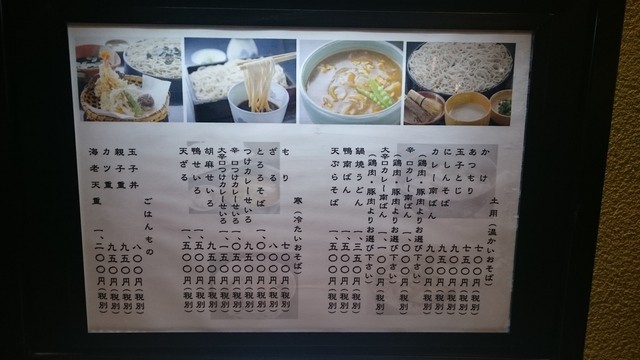 土用（温かいおそば）
かけ 七〇〇円（税別）
あつもり 七五〇円（税別）
玉子とじ 九〇〇円（税別）
にしんそば 九〇〇円（税別）
カレー南ばん 九〇〇円（税別）
（鶏肉・豚肉よりお選び下さい）
辛口カレー南ばん 一、〇〇〇円（税別）
（鶏肉・豚肉よりお選び下さい）
大辛口カレー南ばん 一、一〇〇円（税別）
（鶏肉・豚肉よりお選び下さい）
鍋焼うどん 一、三五〇円（税別）
鴨南ばん 一、五〇〇円（税別）
天ぷらそば 一、五〇〇円（税別）
寒（冷たいおそば）
もり 七〇〇円（税別）
ざる 八〇〇円（税別）
とろろそば 一、〇〇〇円（税別）
つけカレーせいろ 九五〇円（税別）
辛口つけカレーせいろ 一、〇五〇円（税別）
大辛口つけカレーせいろ 一、一五〇円（税別）
胡麻せいろ 九五〇円（税別）
鴨せいろ 一、五〇〇円（税別）
天ざる 一、五〇〇円（税別）
ごはんもの
玉子丼 八〇〇円（税別）
親子重 九五〇円（税別）
カツ重 九五〇円（税別）
海老天重 一、二〇〇円（税別）